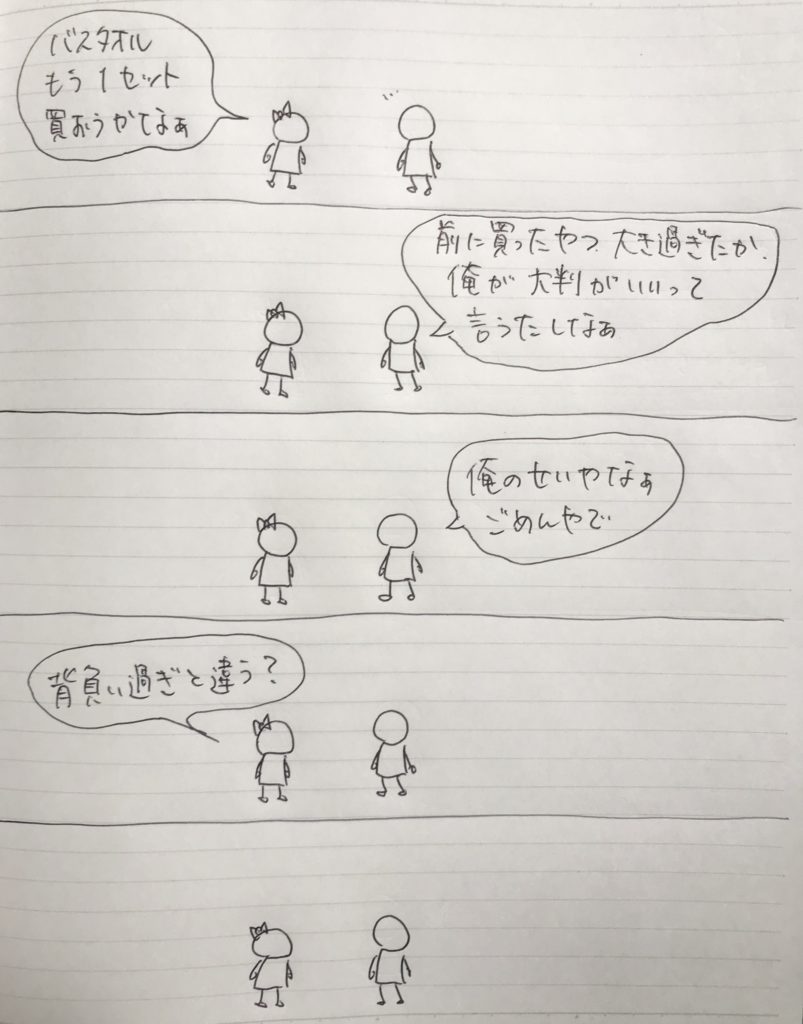 バスタオル
もう1セット
買おうかなぁ
前に買ったやつ大き過ぎたか、
俺が大判がいいって
言うたしなぁ
俺のせいやなぁ
ごめんやで
背負い過ぎと違う?